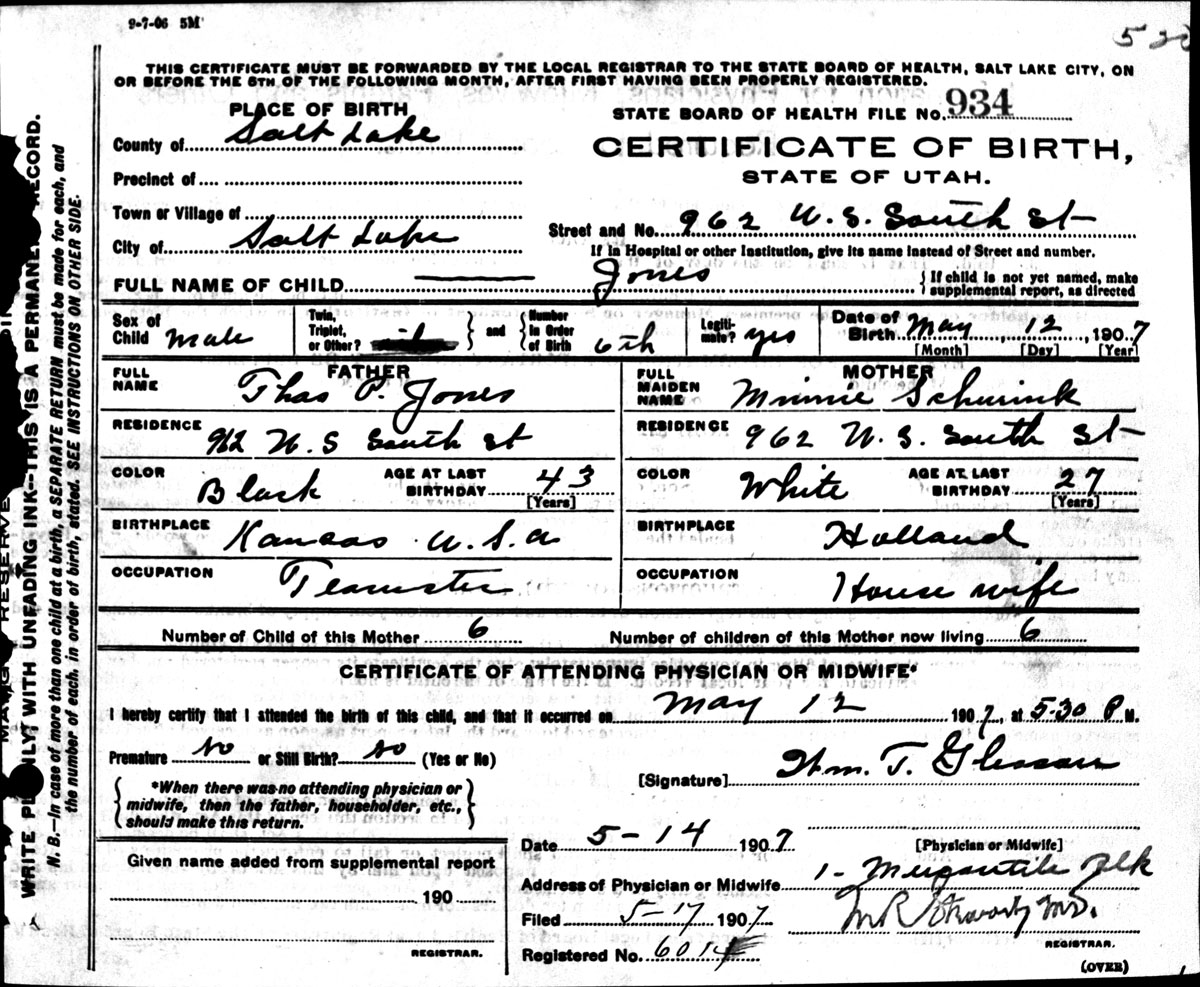 9-7-06 5M
THIS CERTIFICATE MUST BE FORWARDED BY THE LOCAL REGISTRAR TO THE STATE BOARD OF HEALTH, SALT LAKE CITY, ON
OR BEFORE THE 5TH OF THE FOLLOWING MONTH, AFTER FIRST HAVING BEEN PROPERLY REGISTERED.
PLACE OF BIRTH
STATE BOARD OF HEALTH FILE No. 934
County of Salt Lake
CERTIFICATE OF BIRTH,
STATE OF UTAH.
Precinct of
Town or Village of
Street and No. 962 W. S. South St
City of Salt Lake
If in Hospital or other Institution, give its name instead of Street and number.
FULL NAME OF CHILD Jones
{If child is not yet named, make
supplemental report, as directed
Sex of Child male
Twin, Triplet, or Other? } and { Number in Order of Birth 6th
Legitimate? yes
Date of Birth May, 12, 1907
[Month] [Day] [Year]
FATHER
FULL NAME Thos P. Jones
RESIDENCE 962 W. S South St
COLOR Black AGE AT LAST BIRTHDAY 43
[Years]
BIRTHPLACE Kansas U.S.A
OCCUPATION Teamster
MOTHER
FULL MAIDEN NAME Minnie Schurink
RESIDENCE 962 W. S. South St
COLOR White AGE AT LAST BIRTHDAY 27
[Years]
BIRTHPLACE Holland
OCCUPATION House wife
Number of Child of this Mother 6 Number of children of this Mother now living 6
CERTIFICATE OF ATTENDING PHYSICIAN OR MIDWIFE*
I hereby certify that I attended the birth of this child, and that it occurred on May 12 1907, at 5-30 P M.
Premature No or Still Birth? No (Yes or No)
[Signature] Wm. T. Glasson
*When there was no attending physician or
midwife, then the father, householder, etc.,
should make this return.
Date 5-14 1907
[Physician or Midwife]
Given name added from supplemental report
190
REGISTRAR.
Address of Physician or Midwife 1- Mercantile Blk
Filed 5-17 1907
M R Stewart MD.
REGISTRAR.
Registered No. 6014
(OVER)
WRITE PLAINLY WITH UNFADING INK--THIS IS A PERMANENT RECORD.
N. B.--In case of more than one child at a birth, a SEPARATE RETURN must be made for each, and
the number of each, in order of birth, stated. SEE INSTRUCTIONS ON OTHER SIDE.